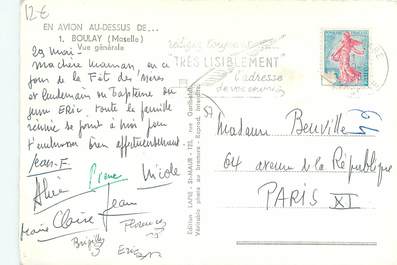 12€
EN AVION AU-DESSUS DE...
1. BOULAY (Moselle)
Vue générale
29 mai -
ma chère maman, en ce
jour de la Fêt des mères
et lendemain du baptême du
jeune ERIC toute la famille
réunie se joint à moi pour
t'embrasser bien affectueusement
Jean-F.
Pierre
Nicole
Marie Claire Jean
Florence
Brigitte
Eric
Edition LAPIE
Véritable photo au bromure - Reprod. Interdite
rédigez toujours
TRÈS LISIBLEMENT
l'adresse
de vos envois
Madame Benville
64 avenue de la République
PARIS XI